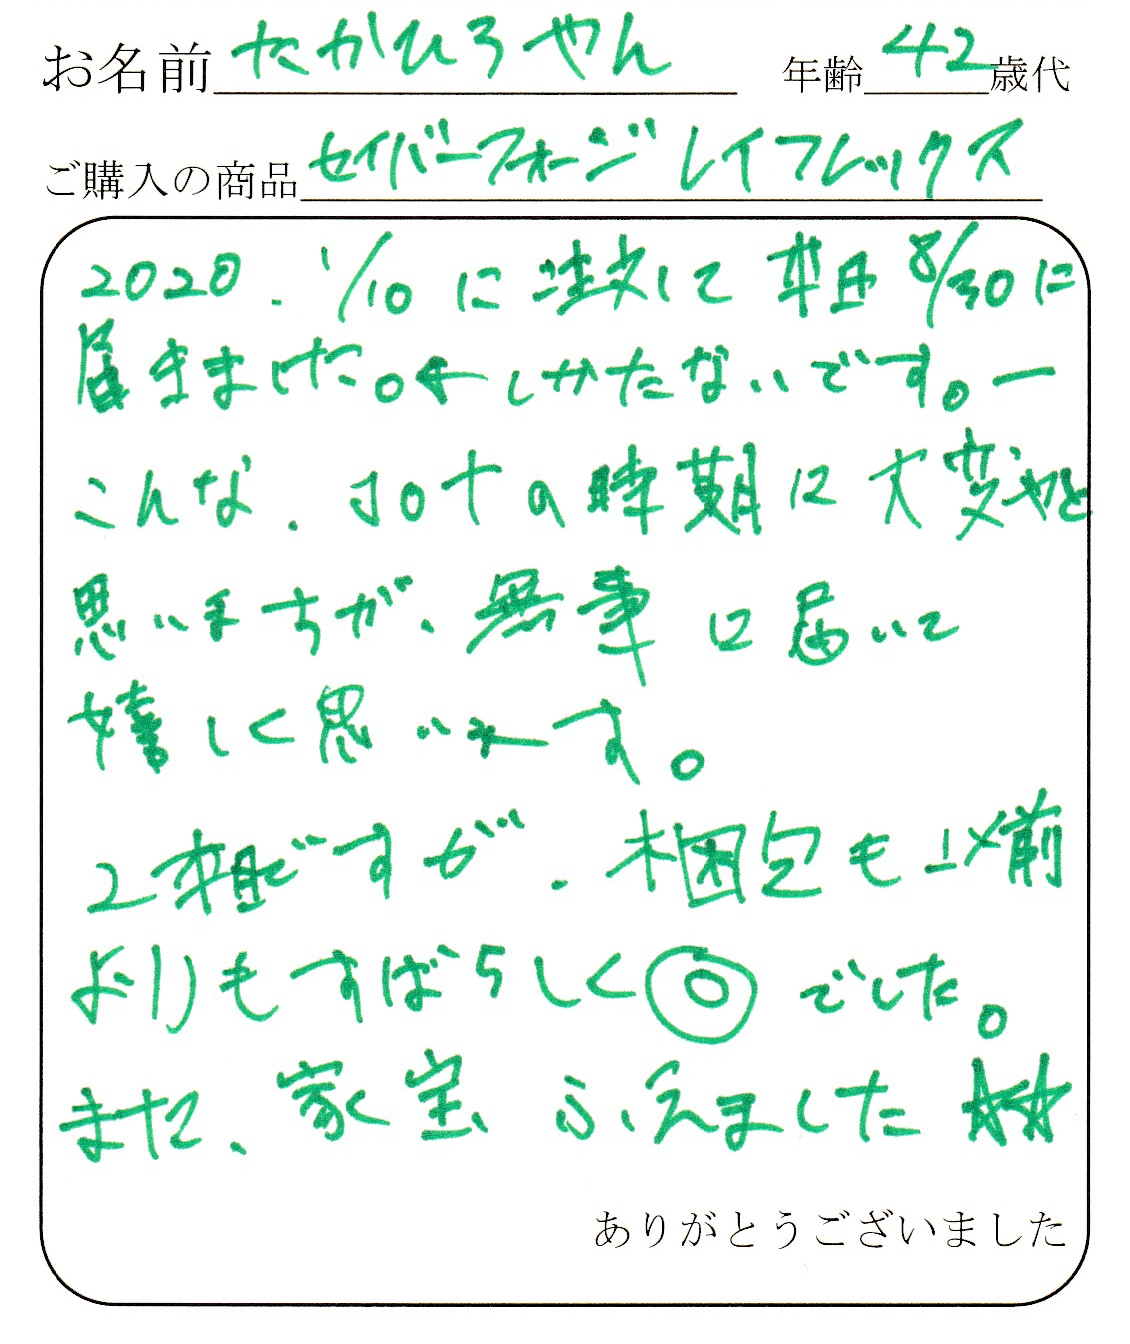 お名前 たかひろやん 年齢 42 歳代
ご購入の商品 セイバーフォージ レイフレックス
2020. 1/10 に 注文して 8/30に
届きました。← しかたないです。ー
こんな、コロナの時期に大変やと
思いますが、無事に届いて
嬉しく思います。
2本目ですが、梱包も以前
よりもすばらしく◎でした。
また、家宝ふえました☆☆
ありがとうございました